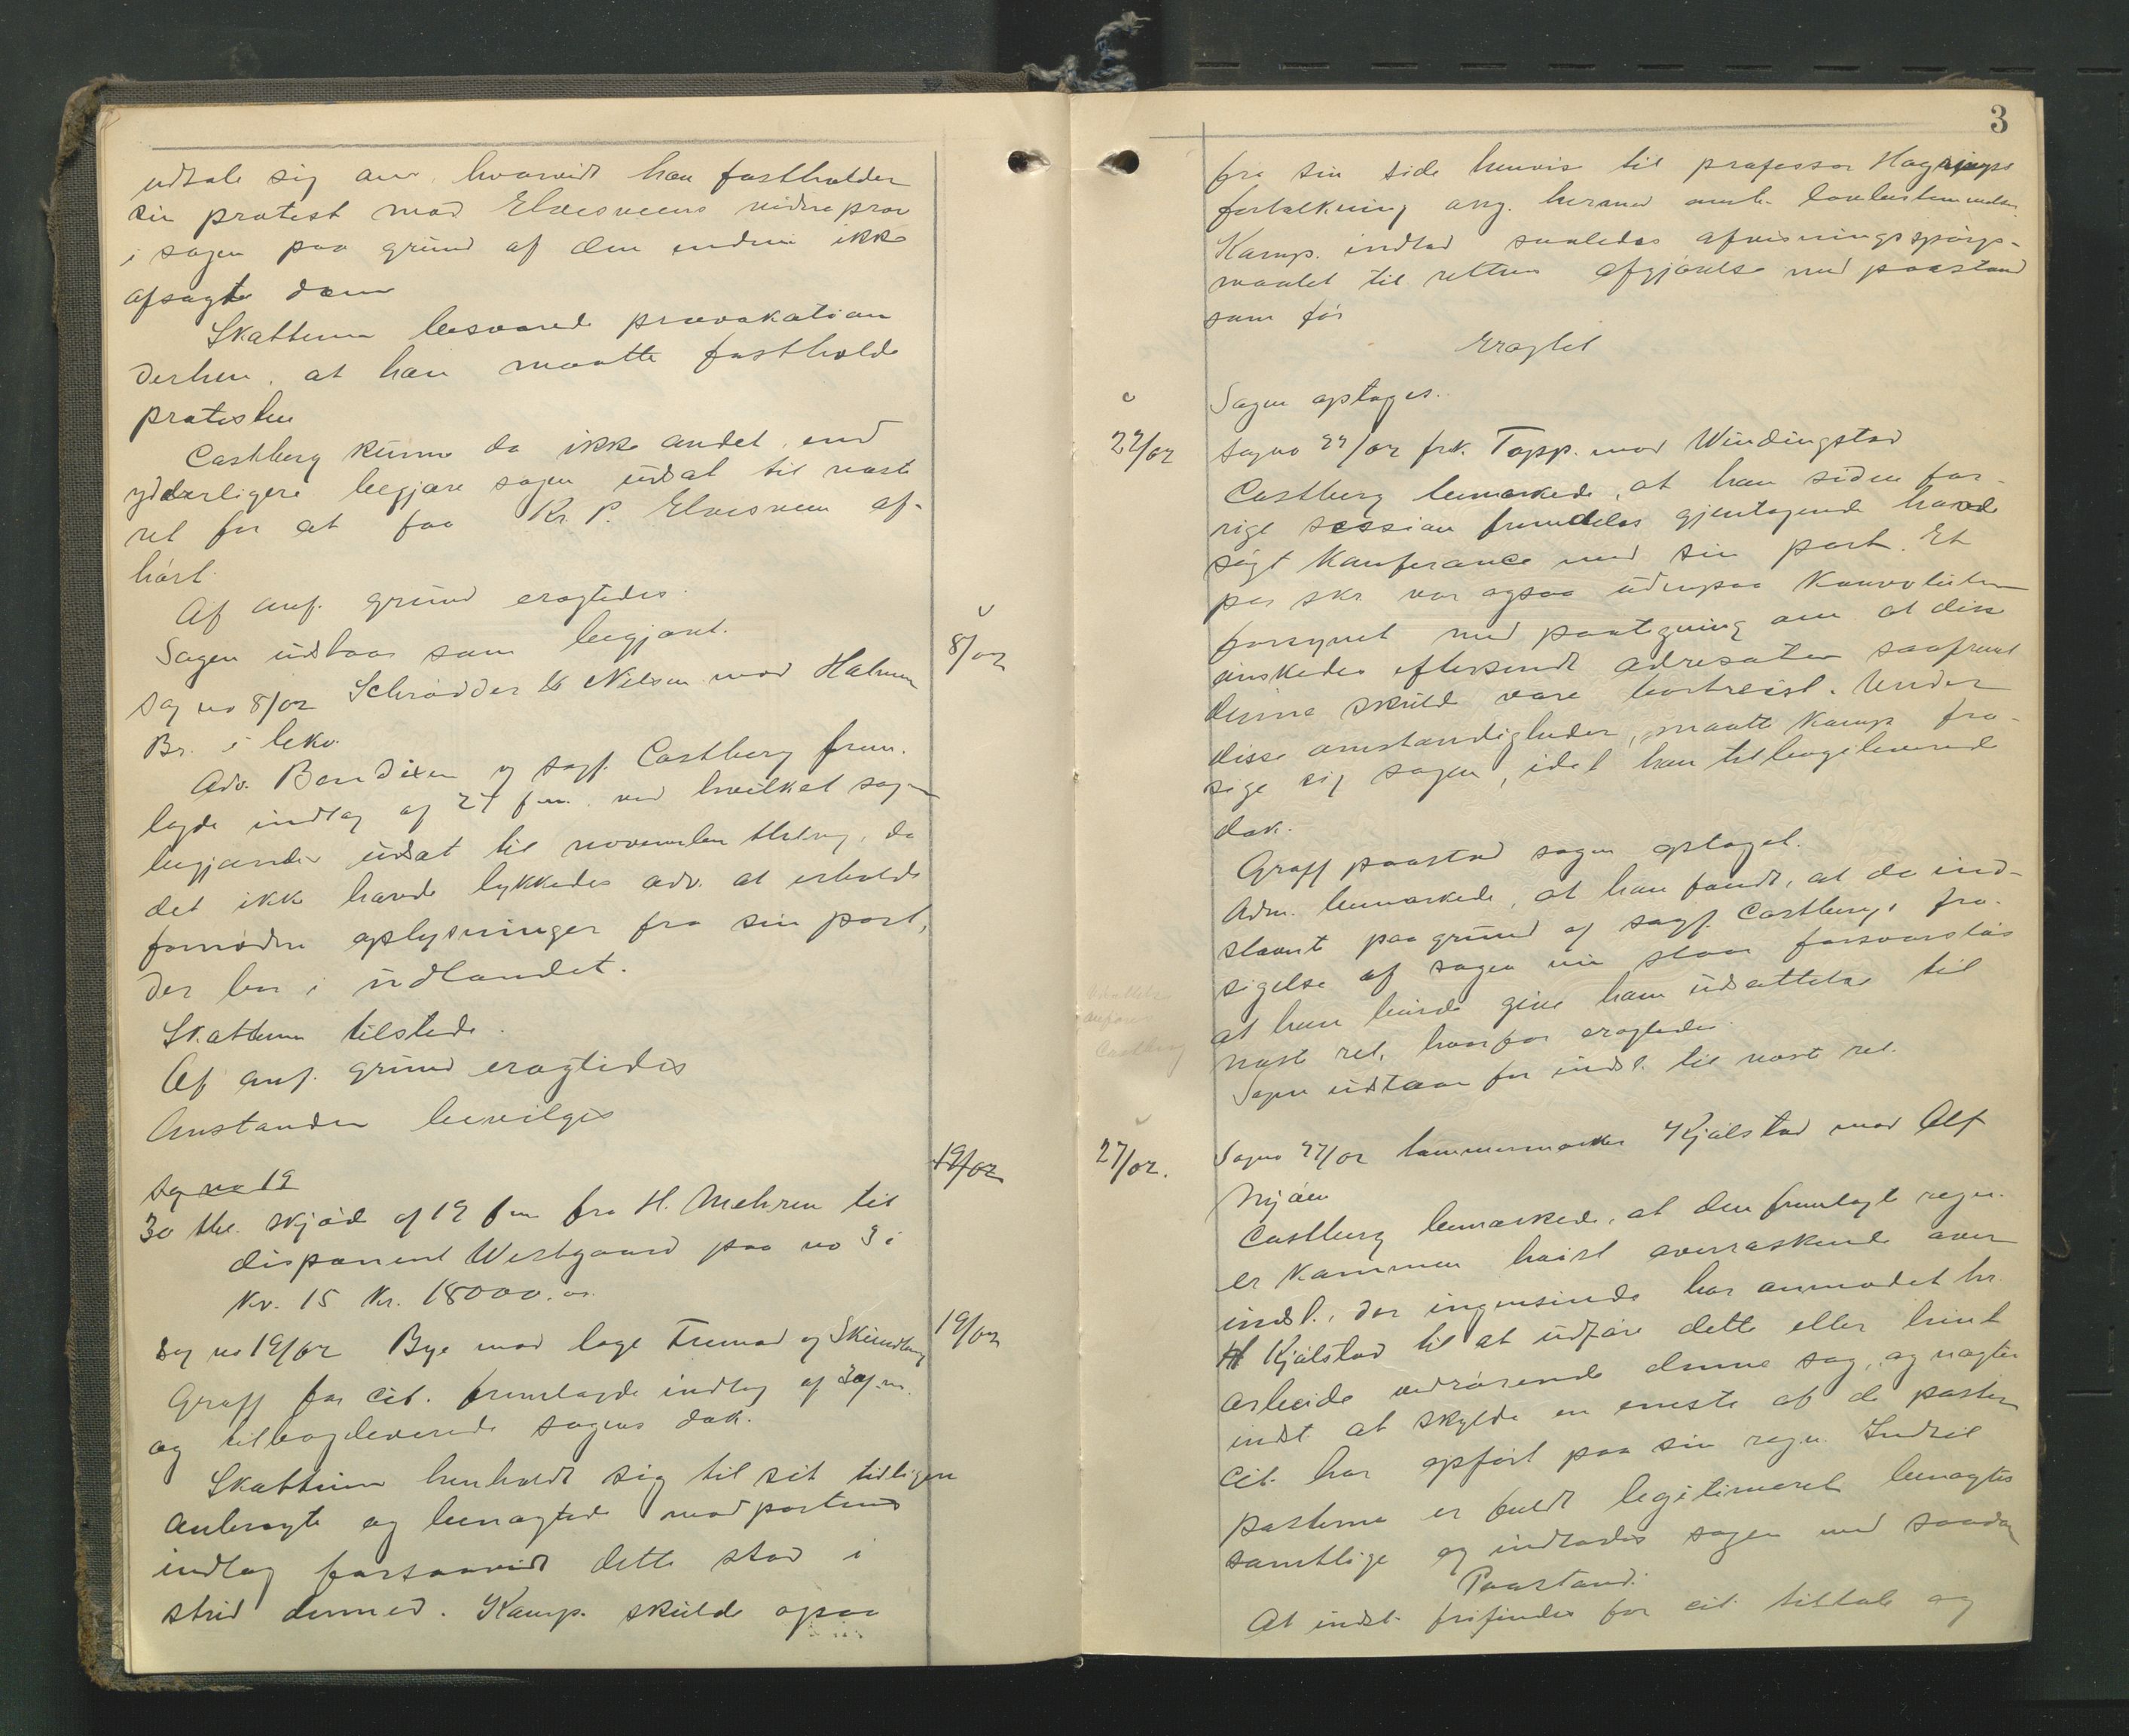 udtale sig om hvorvidt han fastholder
sin protest mod Elvesveens vidneprov
i sagen paa grund af den endnu ikke
afsagte dom
Skattum besvarede provokation
derhen, at han maatte fastholde
protesten
Castberg kunne da ikke andet end
yderligere begjære sagen udsat til næste
ret for at faa Kr. P. Elvesveen af-
hørt.
Af anf. grund eragtedes.
Sagen udstaar som begjært.
8/02
Sag no 8/02 Schrødder & Nilsen mod Halmen
Br. i lekv.
Adv. Bendixen v sagf. Castberg frem-
lagde indlæg af 27 f.m. ved hvilket sagen
begjæredes udsat til november thtng, da
det ikke havde lykkedes adv. at erholde
fornødne oplysninger fra sin part,
der bor i udlandet.
Skattum tilstede.
Af anf. grund eragtedes
Anstanden bevilges
19/02
Sag no 19
30 thl. skjøde af 19 f.m. fra H. Mehren til
disponent Westgaard paa no 3 i
kv. 15 kr. 18000.00.
19/02
Sag no 19/02 Bye mod loge Fremad og Skiundberg
Graff for cit. fremlagde indlæg af d.m.
og tilbageleverede sagens dok.
Skattum henholdt sig til sit tidligere
anbragte og benægtede modpartens
indlæg forsaavidt dette stod i
strid dermed. Komp. skulde ogsaa
3
fra sin side henvise til professor Hagerups
fortolkning ang. hermed omh. lovbestemmelse.
Komp. indlod saaledes afvisningsspørgs-
maalet til rettens afgjørelse med paastand
som før
Eragtet
Sagen optages.
27/02
Sagno 27/02 frk. Topp. mod Windingstad
Castberg bemærkede, at han siden for-
rige session fremdeles gjentagende havde
søgt konferance med sin part. Et
par skr. var ogsaa udenpaa konvolutten
forsynet med paategning om at disse
ønskedes eftersendt adressaten saafremt
denne skulde være bortreist. Under
disse omstændigheder, maatte komp fra-
sige sig sagen, idet han tilbageleverede
dok.
Graff paastod sagen optaget.
Adm. bemærkede, at han fandt, at da ind-
stevnte paa grund af sagf. Castbergs fra-
sigelse af sagen nu staar forsvarsløs
at han burde give ham udsættelse til
næste ret, hvorfor eragtedes
Sagen udstaar for indst. til næste ret.
Castberg
27/02.
Sagno 27/02 tømmermærker Kjølstad mod Alf
Mjøen
Castberg bemærkede, at den fremlagte regn.
er kommen høist overraskende over
indst., der ingensinde har anmodet hr.
H Kjølstad til at udføre dette eller hint
arbeide vedrørende denne sag, og nægter
indst. at skylde en eneste af de poster
cit. har opført paa sin regn. Indtil
posterne er fuldt legitimeret benægtes
samtlige og indlodes sagen med saadan
Paastand:
At indst. frifindes for cit. tiltale og